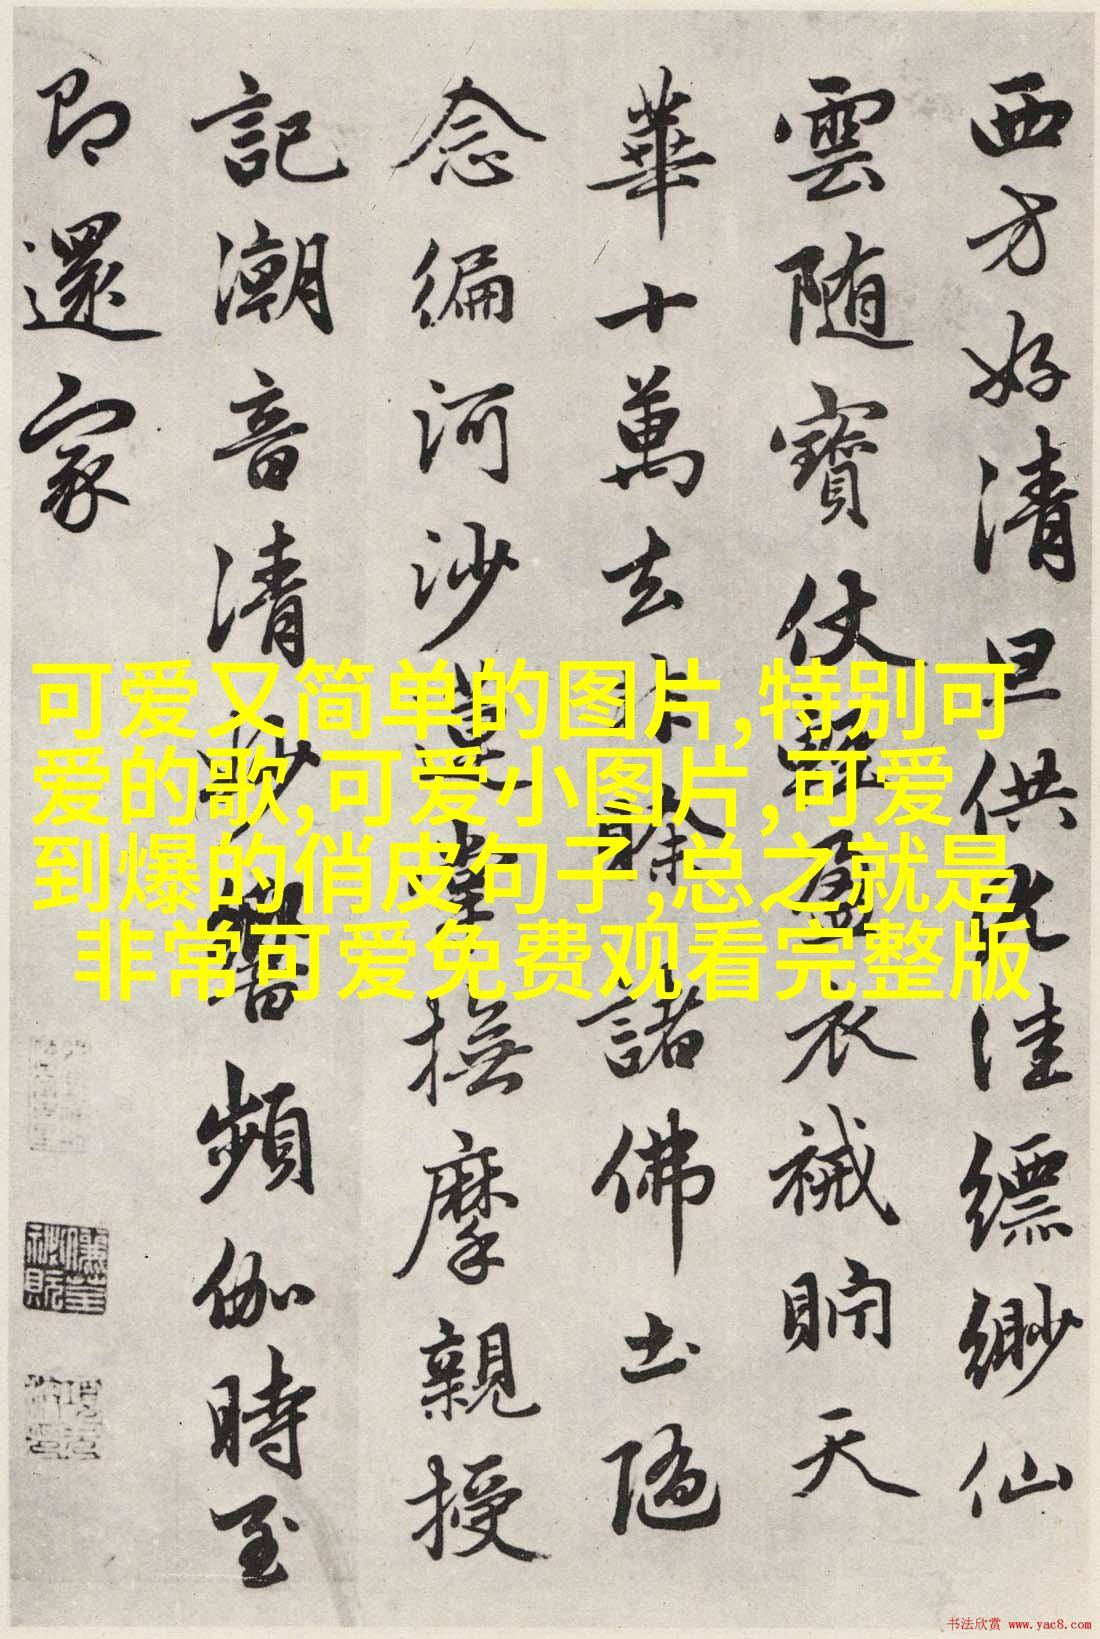 西方好清旦供尤洼縹緲仙
雲随寶仗盈衣裓貯天
華十萬去餘諸佛土隨
念編河沙蓮掌撫摩親授
記潮音清妙響頻伽時至
即還家
可爱又简单的图片,特别可
爱的歌,可爱小图片,可爱
到爆的俏皮句子,总之就是
非常可爱免费观看完整版
书法欣赏 www.yac8.com